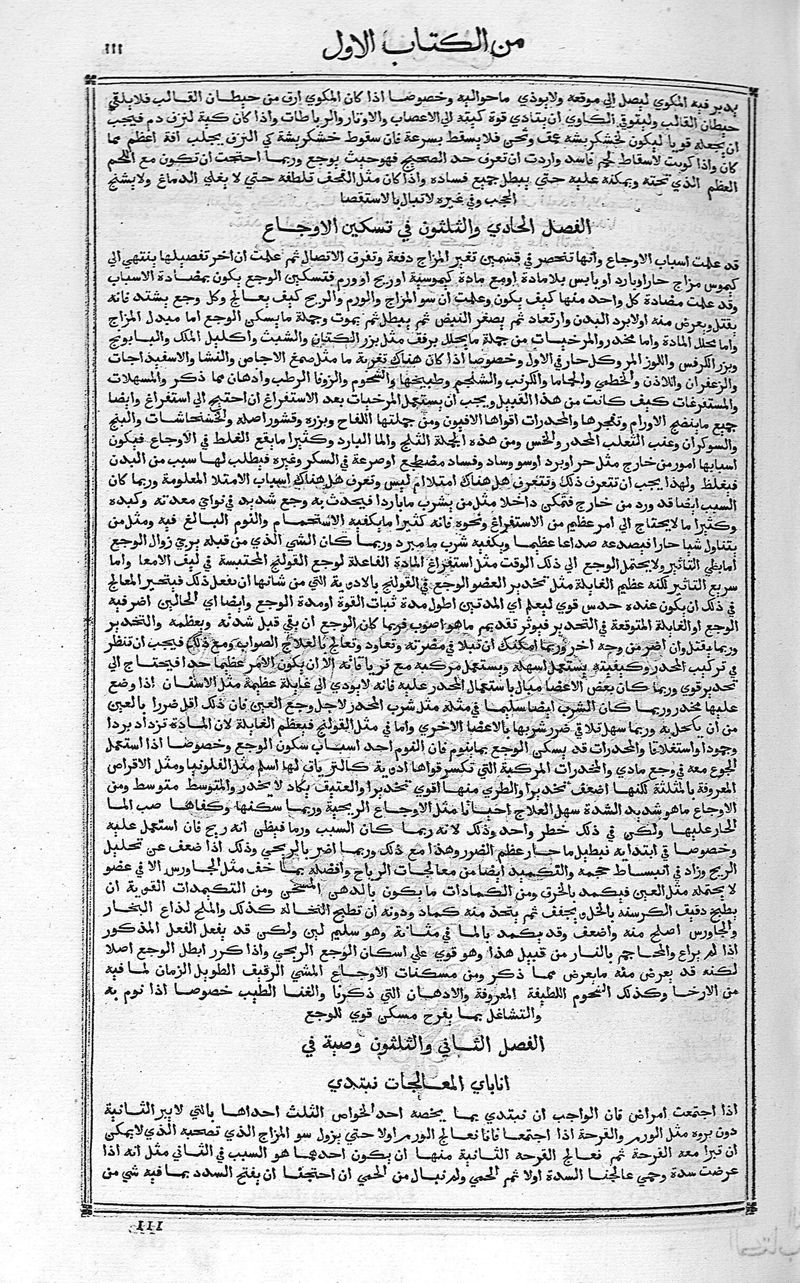 ١١١ من الكتاب الاول
يدبر فيه المكوي ليصل الي موقعه ولا يوذي ما حواليه وخصوصا اذا كان المكوي ارق من حيطان القالب فلا يلقي
حيطان القالب وليتوقي الكاوي ان يتادي قوة كيته الي الاعصاب والاوتار والرباطات واذا كان كيه لنزف دم فيجب
ان يجعله قويا ليكون لخشكريشته عمق وثخن فلا يسقط بسرعة فان سقوط خشكريشة كي النزف يجلب افة اعظم مما
كان واذا كويت لاسقاط لحم فاسد واردت ان تعرف حد الصحيح فهو حيث يوجع وربما احتجت ان تكوي مع اللحم
العظم الذي تحته وتمكنه عليه حتي يبطل جميع فساده واذا كان مثل القحف تلطفه حتي لا يغلي الدماغ ولا يشنج
الحجب وفي غيره لا تبال بالاستقصا
الفصل الحادي والثلثون في تسكين الاوجاع
قد علمت اسباب الاوجاع وانها تنحصر في قسمين تغير المزاج دفعة وتفرق الاتصال ثم علمت ان اخر تفصيلها ينتهي الي
سو مزاج حار او بارد او يابس بلا مادة او مع مادة كيموسية او ريح او ورم فتسكين الوجع يكون بمضادة الاسباب
وقد علمت مضادة كل واحد منها كيف يكون وعلمت ان سو المزاج والورم والريح كيف يعالج وكل وجع يشتد فانه
يقتل ويعرض منه اولا برد البدن وارتعاد ثم يصغر النبض ثم يبطل ثم يموت وجملة ما يسكن الوجع اما مبدل المزاج
واما محلل المادة واما مخدر والمرخيات من جملة ما يحلل برفق مثل بزر الكتان والشبت واكليل الملك والبابونج
وبزر الكرفس واللوز المر وكل حار في الاول وخصوصا اذا كان هناك تغرية ما مثل صمغ الاجاص والنشا والاسفيداجات
والزعفران واللاذن والخطمي والحماما والكرنب والشلجم وطبيخها والشحوم والزوفا الرطب وادهان مما ذكر والمسهلات
والمستفرغات كيف كانت من هذا القبيل ويجب ان يستعمل المرخيات بعد الاستفراغ ان احتيج الي استفراغ وايضا
جميع ما ينضج الاورام وتفجرها والمخدرات اقواها الافيون ومن جملتها اللفاح وبزره وقشور اصله والخشخاشات والبنج
والشوكران وعنب الثعلب المخدر والخس ومن هذه الجملة الثلج والما البارد وكثيرا ما يقع الغلط في الاوجاع فيكون
اسبابها امور من خارج مثل حر او برد او سو وساد وفساد مضطجع او صرعة في السكر وغيره فيطلب لها سبب من البدن
فيغلط ولهذا يجب ان تتعرف ذلك وتتعرف هل هناك امتلا ام ليس وتعرف هل هناك اسباب الامتلا المعلومة وربما كان
السبب ايضا قد ورد من خارج فتمكن داخلا مثل من يشرب ما باردا فيحدث به وجع شديد في نواحي معدته وكبده
وكثيرا ما لا يحتاج الي امر عظيم من الاستفراغ ونحوه فانه كثيرا ما يكفيه الاستحمام والنوم البالغ فيه ومثل من
يتناول شيا حارا فيصدعه صداعا عظيما ويكفيه شرب ما مبرد وربما كان الشي الذي من قبله يرجي زوال الوجع
اما بطي التاثير ولا يحتمل الوجع الي ذلك الوقت مثل استفراغ المادة الفاعلة لوجع القولنج المحتبسة في ليف الامعا واما
سريع التاثير لكنه عظيم الغايلة مثل تخدير العضو الوجع في القولنج بالادوية التي من شانها ان تفعل ذلك فيتحير المعالج
في ذلك ان يكون عنده حدس قوي ليعلم اي المدتين اطول مدة ثبات القوة او مدة الوجع وايضا اي الحالين اضر فيه
الوجع او الغايلة المتوقعة في التخدير فيوثر تقديم ما هو اصوب فربما كان الوجع ان بقي قبل شدته وبعظمه والتخدير
ربما يقتل وان اضر من وجه اخر وربما امكنك ان تتلافي مضرته وتعاود وتعالج بالعلاج الصواب ومع ذلك فيجب ان تنظر
في تركيب المخدر وكيفيته يستعمل اسهله ويستعمل مركبه مع ترياقاته الا ان يكون الامر عظيما جدا فيحتاج الي
تخدير قوي وربما كان بعض الاعضا مبال باستعمال المخدر عليه فانه لا يودي الي غايلة عظيمة مثل الاسنان اذا وضع
عليها مخدر وربما كان الشرب ايضا سليما في مثله مثل شرب المخدر لاجل وجع العين فان ذلك اقل ضررا بالعين
من ان يكتحل به وربما سهل تلافي ضرر شربها بالاعضا الاخري واما في مثل القولنج فيعظم الغايلة لان المادة تزداد بردا
وجمودا واستغلاقا والمخدرات قد يسكن الوجع بما ينوم فان النوم احد اسباب سكون الوجع وخصوصا اذا استعمل
الجوع معه في وجع مادي والمخدرات المركبة التي تكسر قواها ادوية كالترياق لها اسلم مثل الفلونيا ومثل الاقراص
المعروفة بالمثلثة لكنها اضعف تخديرا والطري منها اقوي تخديرا والعتيق يكاد لا يخدر والمتوسط متوسط ومن
الاوجاع ما هو شديد الشدة سهل العلاج احيانا مثل الاوجاع الريحية وربما سكنها وكفاها صب الما
الحار عليها ولكن في ذلك خطر واحد وذلك لانه ربما كان السبب ورما فيظن انه ريح فان استعمل عليه
وخصوصا في ابتدايه تبطيل ما حار عظم الضرر وهذا مع ذلك وربما اضر بالريحي وذلك اذا ضعف عن تحليل
الريح وزاد في انبساط حجمه والتكميد ايضا من معالجات الرياح وافضله بما خف مثل الجاورس الا في عضو
لا يحتمله مثل العين فيكمد بالخرق ومن الكمادات ما يكون بالدهن المسخن ومن التكميدات القوية ان
يطبخ دقيق الكرسنه بالخل ويجفف ثم يتخذ منه كماد ودونه ان تطبخ النخالة كذلك والملح لذاع البخار
والجاورس اصلح منه واضعف وقد يكمد بالما في مثانة وهو سليم لين ولكن قد يفعل الفعل المذكور
اذا لم يراع والمحاجم بالنار من قبيل هذا وهو قوي علي اسكان الوجع الريحي واذا كرر ابطل الوجع اصلا
لكنه قد يعرض منه ما يعرض مما ذكر ومن مسكنات الاوجاع المشي الرقيق الطويل الزمان لما فيه
من الارخا وكذلك الشحوم اللطيفة المعروفة والادهان التي ذكرنا والغنا الطيب خصوصا اذا نوم به
والتشاغل بما يفرح مسكن قوي للوجع
الفصل الثاني والثلثون وصية في
انا باي المعالجات نبتدي
اذا اجتمعت امراض فان الواجب ان نبتدي بما يخصه احد الخواص الثلث احداها بالتي لا يبر الثانية
دون بروه مثل الورم والقرحة اذا اجتمعا فانا نعالج الورم اولا حتي يزول سو المزاج الذي تصحبه الذي لا يمكن
ان تبرا معه القرحة ثم نعالج القرحة الثانية منها ان يكون احدهما هو السبب في الثاني مثل انه اذا
عرضت سدة وحمي عالجنا السدة اولا ثم الحمي ولم نبال من الحمي ان احتجنا ان يفتح السدد بما فيه شي من
111